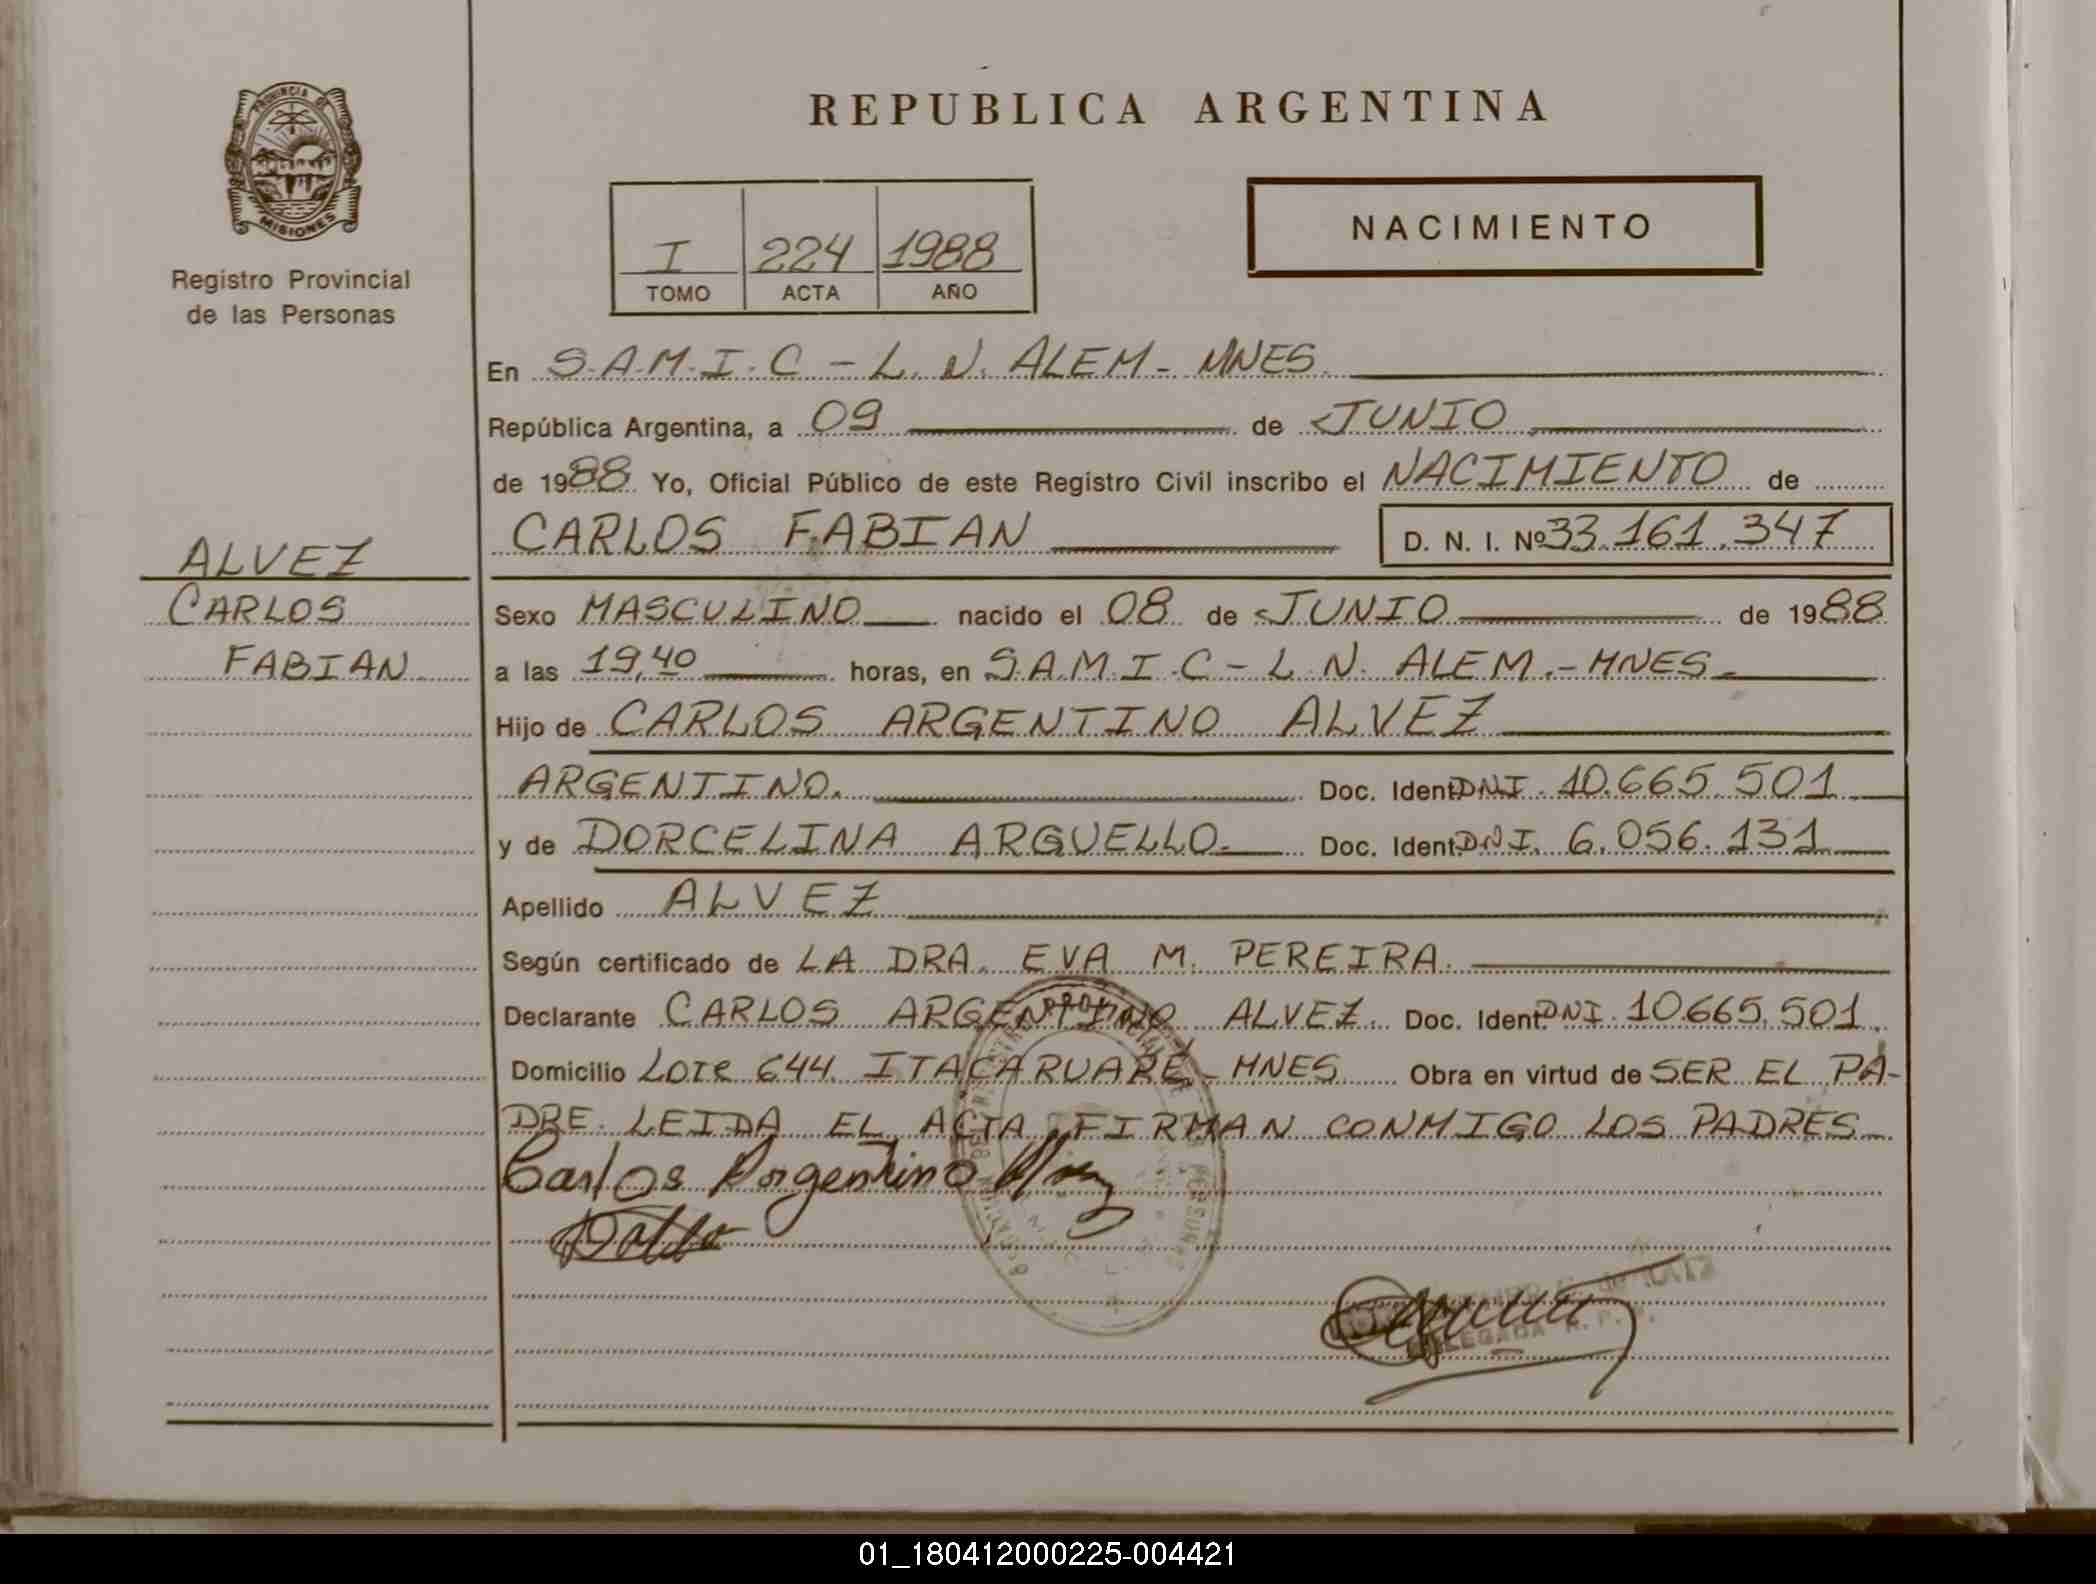 REPUBLICA ARGENTINA
PROVINCIA DE
MISIONES
Registro Provincial
de las Personas
I 224 1988
TOMO ACTA AÑO
NACIMIENTO
En S.A.M.I.C - L. N. ALEM - MNES.
República Argentina, a 09 de JUNIO
de 1988 Yo, Oficial Público de este Registro Civil inscribo el NACIMIENTO de
CARLOS FABIAN D. N. I. Nº 33.161.347
ALVEZ
CARLOS
FABIAN
Sexo MASCULINO nacido el 08 de JUNIO de 1988
a las 19,40 horas, en S.A.M.I.C - L N. ALEM.- MNES -
Hijo de CARLOS ARGENTINO ALVEZ
ARGENTINO. Doc. Ident. DNI. 10.665.501
y de DORCELINA ARGUELLO. Doc. Ident. DNI. 6.056.131
Apellido ALVEZ
Según certificado de LA DRA. EVA M. PEREIRA.
Declarante CARLOS ARGENTINO ALVEZ. Doc. Ident. DNI. 10.665.501.
Domicilio LOTE 644. ITACARUARÉ - MNES Obra en virtud de SER EL PA-
DRE. LEIDA EL ACTA FIRMAN CONMIGO LOS PADRES -
Carlos Argentino Alvez
DELEGADA R. P. P.
01_180412000225-004421